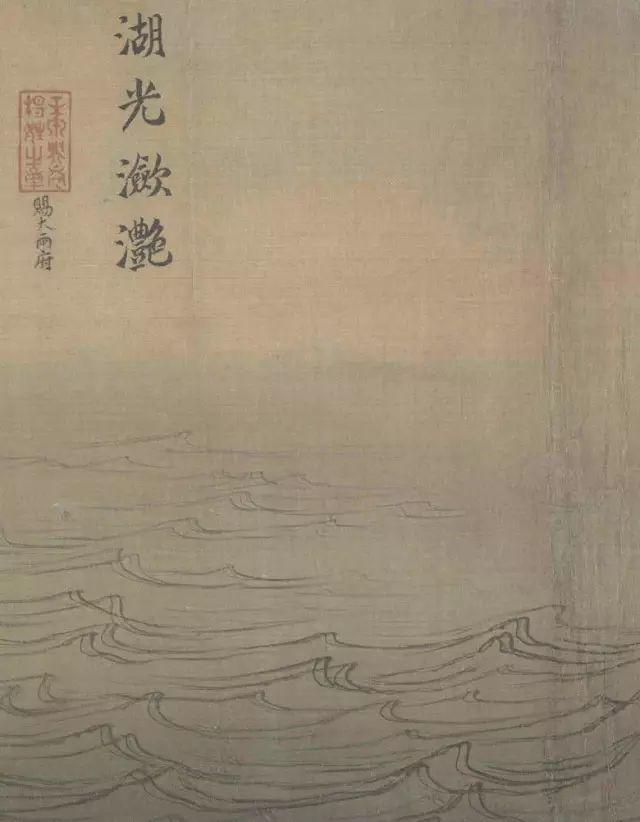 湖光瀲灔
賜大兩府